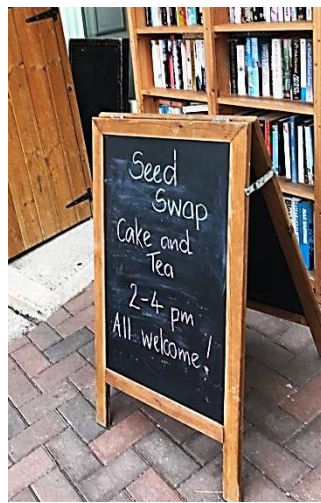 Seed
Swap
Cake and
Tea
2-4 pm
All welcome!